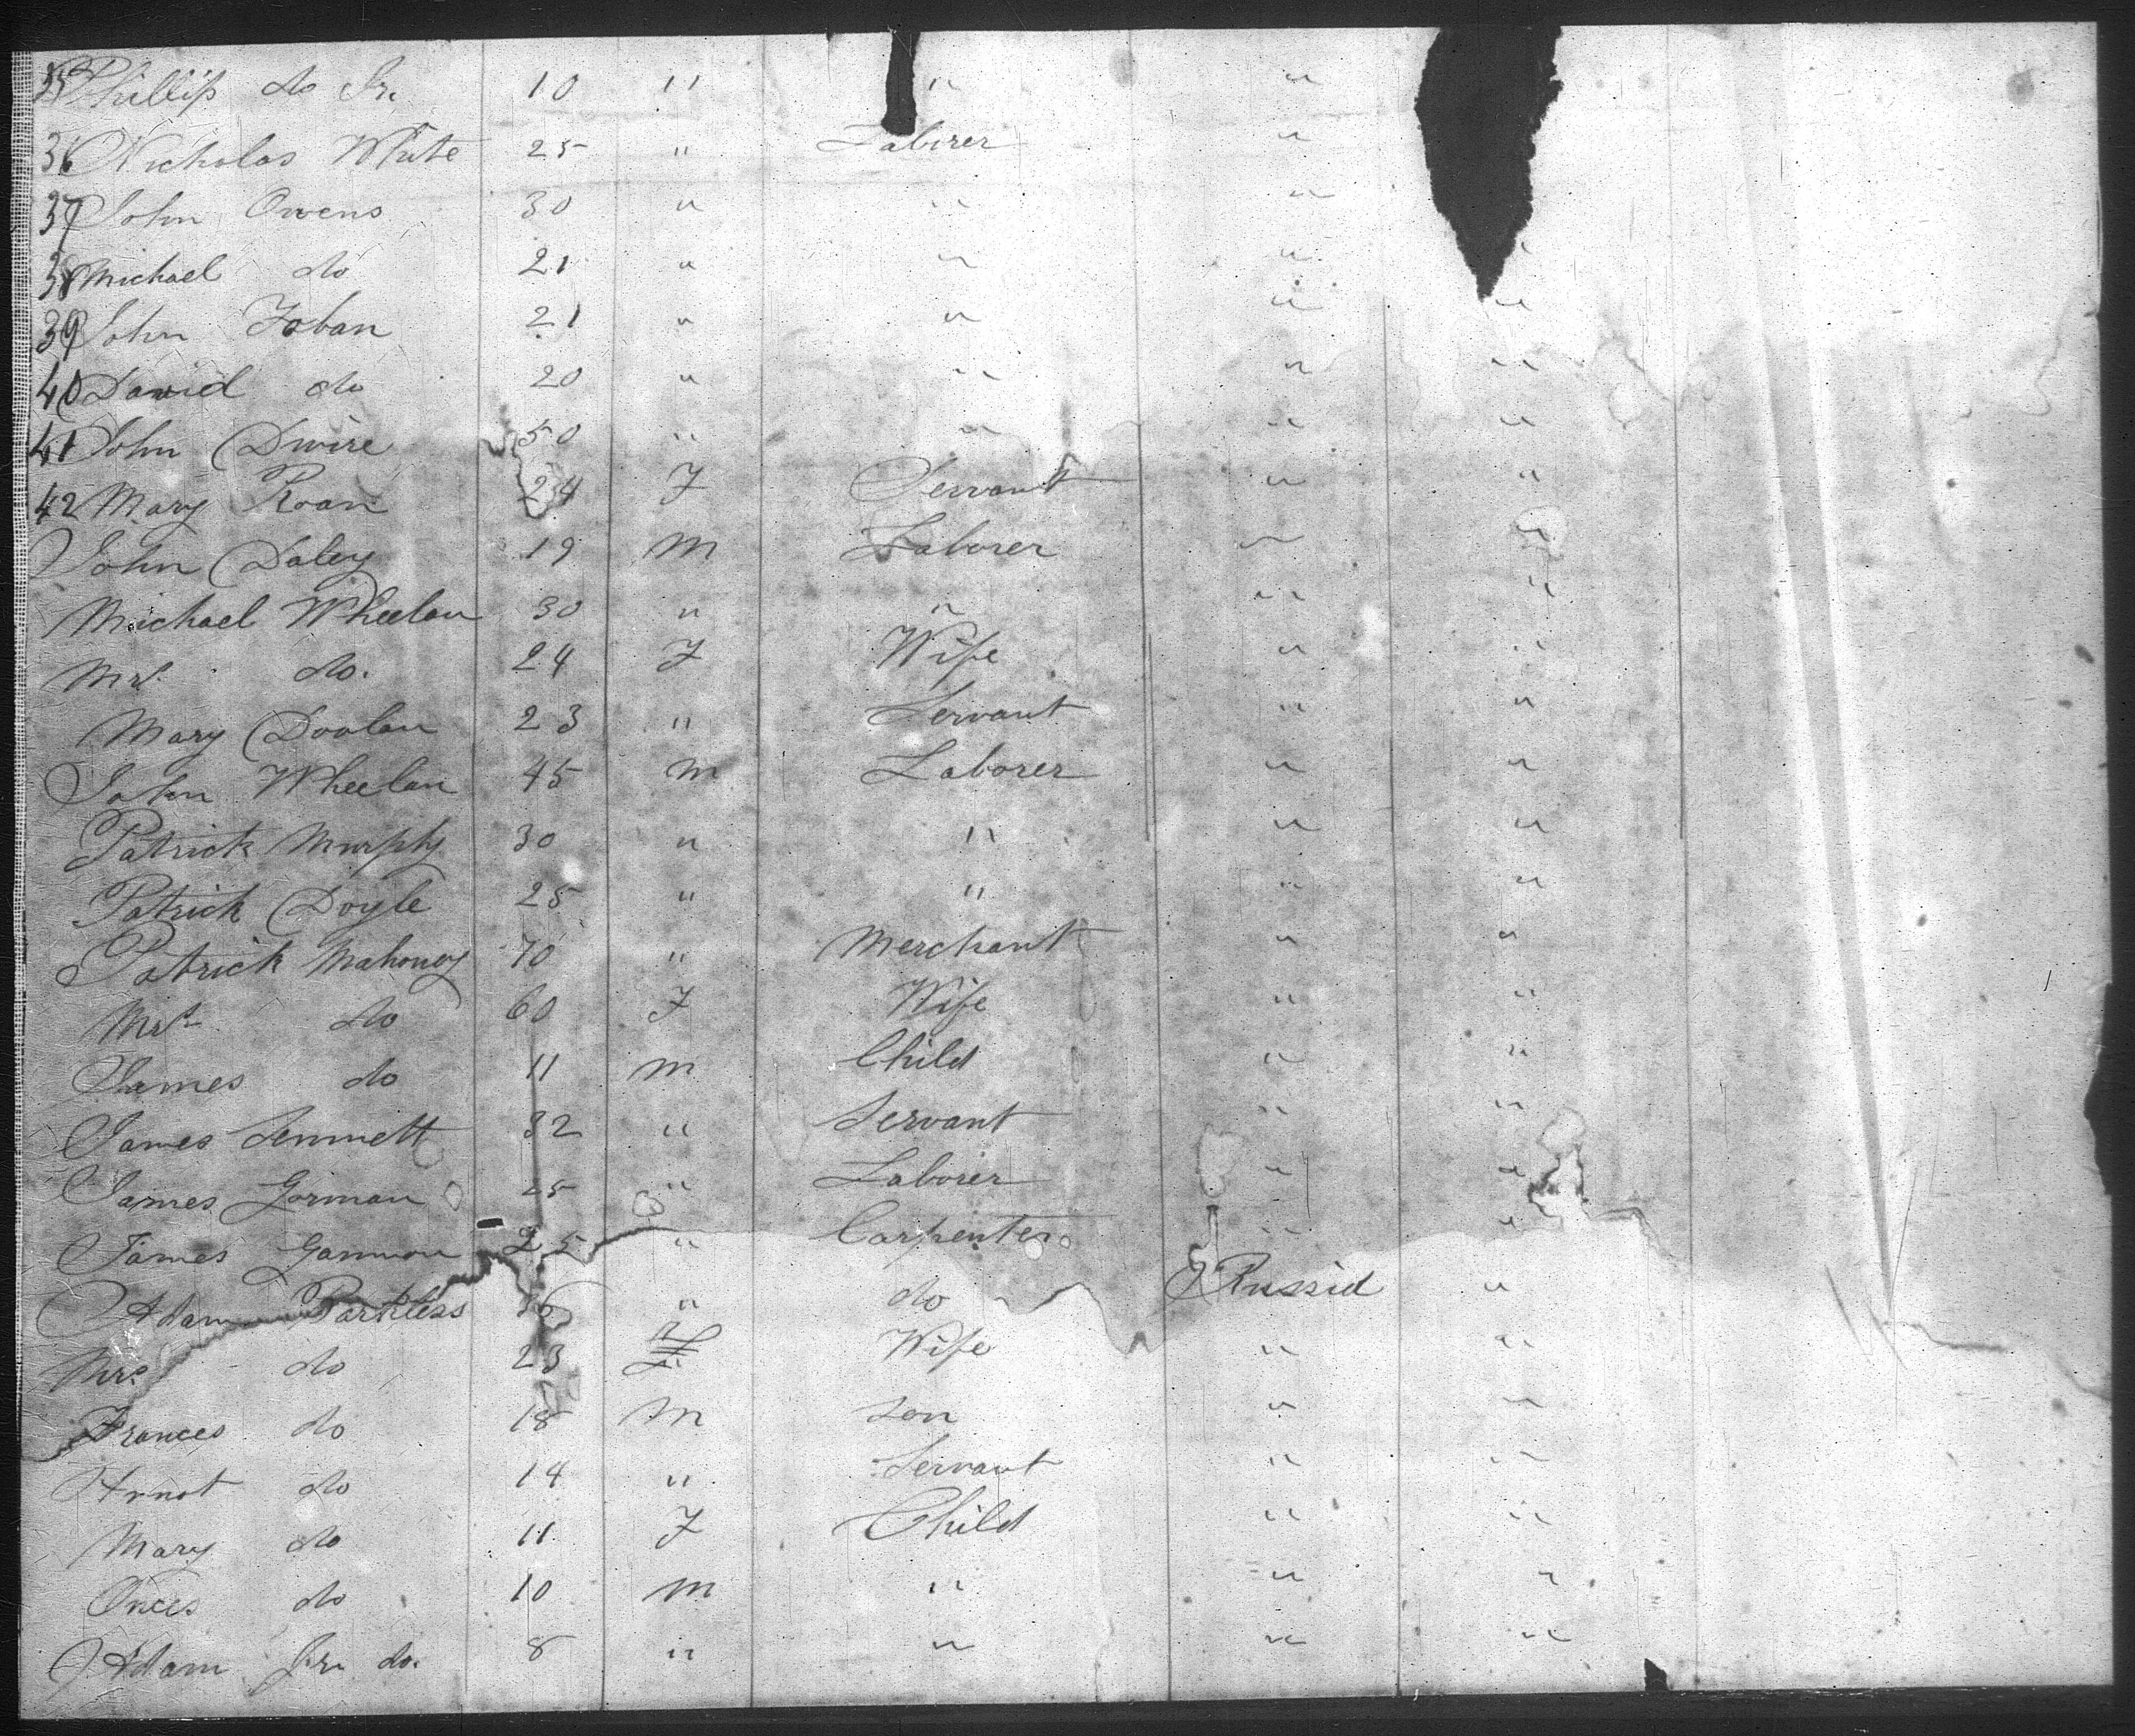 35 Phillip do Jr. 10 " " "
36 Nicholas White 25 " Laborer "
37 John Owens 30 " " "
38 Michael do 21 " " " "
39 John Foban 21 " " " "
40 David do 20 " " " "
41 John Dwire 50 " " " "
42 Mary Roan 24 F Servant " "
John Daley 19 M Laborer " "
Michael Wheelan 30 " " " "
Mrs. do. 24 F Wife " "
Mary Doolan 23 " Servant " "
John Wheelan 45 M Laborer " "
Patrick Murphy 30 " " " "
Patrick Doyle 25 " " " "
Patrick Mahoney 70 " Merchant " "
Mrs. do 60 F Wife " "
James do 11 M Child " "
James Sennett 32 " Servant " "
James Gorman 25 " Laborer " "
James Gannon 25 " Carpenter " "
Adam Parkless 36 " do Russid "
Mrs. do 23 " Wife " "
Frances do 18 M Son " "
Arnot do 14 " Servant " "
Mary do 11 F Child " "
do 10 M " " "
Adam Jr. do. 8 " " " "